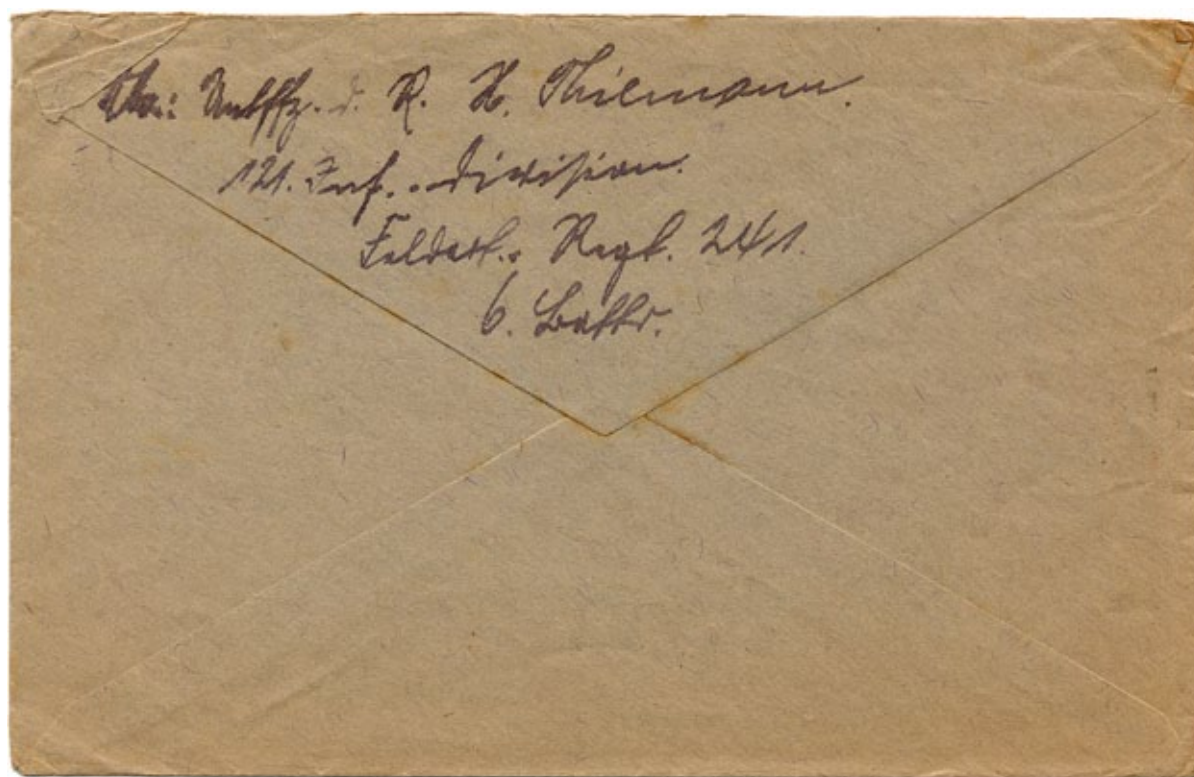 Abs.: Untffz. d. R. H. Thilemann.
121. Inf.-Division.
Feldart. Regt. 241.
6. Battr.